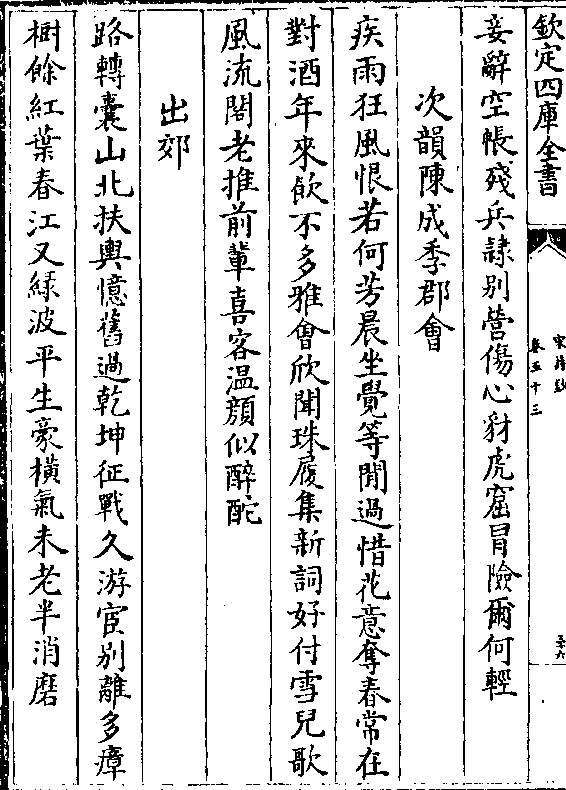 欽定四庫全書
宋詩鈔
卷五十三
妾辭空帳殘兵隷别營傷心豺虎窟冒險爾何輕
次韻陳成季郡會
疾雨狂風恨若何芳晨坐覺等閒過惜花意奪春常在
對酒年來飲不多雅會欣聞珠履集新詞好付雪兒歌
風流閣老推前輩喜客温顔似醉酡
出郊
路轉囊山北扶輿憶舊過乾坤征戰久游宦别離多瘴
樹餘紅葉春江又緑波平生豪横氣未老半消磨